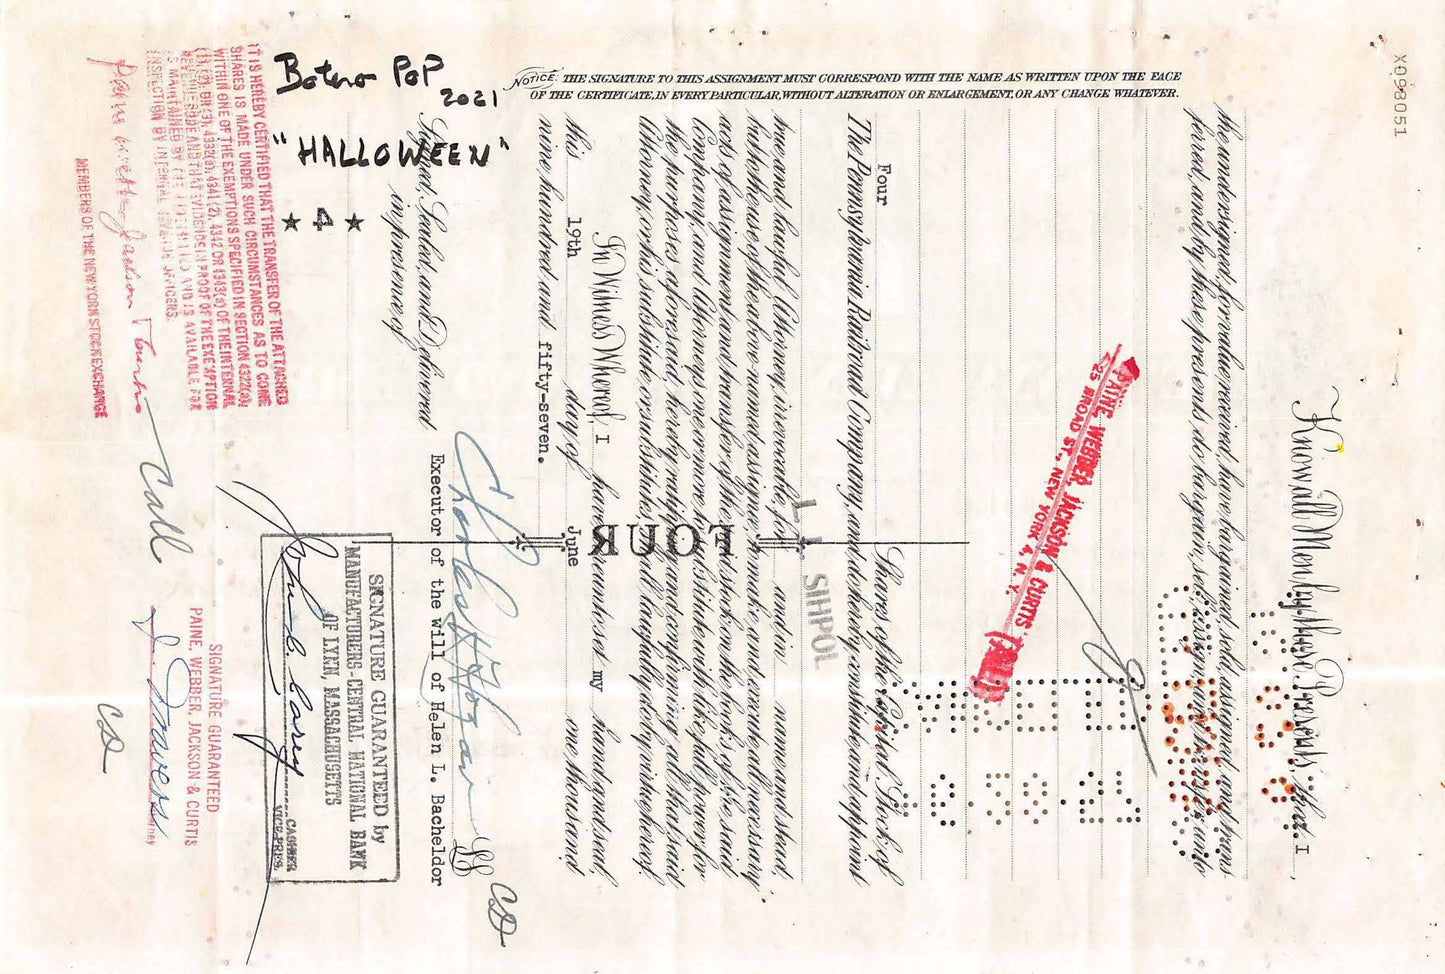 X098051
Know all Men by these Presents, That I
the undersigned, for value received, have bargained, sold, assigned and trans
ferred, and by these presents do bargain, sell, assign and transfer unto
PAINE, WEBBER, JACKSON & CURTIS
25 BROAD ST., NEW YORK 4, N. Y.
Four Shares of the Capital Stock of
The Pennsylvania Railroad Company, and do hereby constitute and appoint
L. L. SIHPOL
true and lawful Attorney, irrevocable for and in name and stead,
but to the use of the above named assignee to make and execute all necessary
acts of assignment and transfer of the said stock on the books of the said
Company, and Attorneys one or more to substitute with like full power for
the purposes aforesaid, hereby ratifying and confirming all that said
Attorney, or his substitute or substitutes, shall lawfully do by virtue hereof.
FOUR
In Witness Whereof, I have hereunto set my hand and seal,
this 19th day of June one thousand
nine hundred and fifty-seven.
NOTICE: THE SIGNATURE TO THIS ASSIGNMENT MUST CORRESPOND WITH THE NAME AS WRITTEN UPON THE FACE
OF THE CERTIFICATE, IN EVERY PARTICULAR, WITHOUT ALTERATION OR ENLARGEMENT, OR ANY CHANGE WHATEVER.
Signed, Sealed, and Delivered
in presence of
Executor of the will of Helen L. Bacheldor
Botero PoP
2021
"HALLOWEEN"
★ 4 ★
SIGNATURE GUARANTEED by
MANUFACTURERS-CENTRAL NATIONAL BANK
OF LYNN, MASSACHUSETTS
CASHIER
VICE PRES.
IT IS HEREBY CERTIFIED THAT THE TRANSFER OF THE ATTACHED
SHARES IS MADE UNDER SUCH CIRCUMSTANCES AS TO COME
WITHIN ONE OF THE EXEMPTIONS SPECIFIED IN SECTION 4322(a),
(1), (2), OR (3), 4332(a), 4341(2), 4342 OR 4343(a) OF THE INTERNAL
REVENUE CODE AND THAT EVIDENCE IN PROOF OF THE EXEMPTION
IS MAINTAINED BY THE AND IS AVAILABLE FOR
INSPECTION BY INTERNAL REVENUE OFFICERS.
Paine Webber Jackson & Curtis
MEMBERS OF THE NEW YORK STOCK EXCHANGE
SIGNATURE GUARANTEED
PAINE, WEBBER, JACKSON & CURTIS